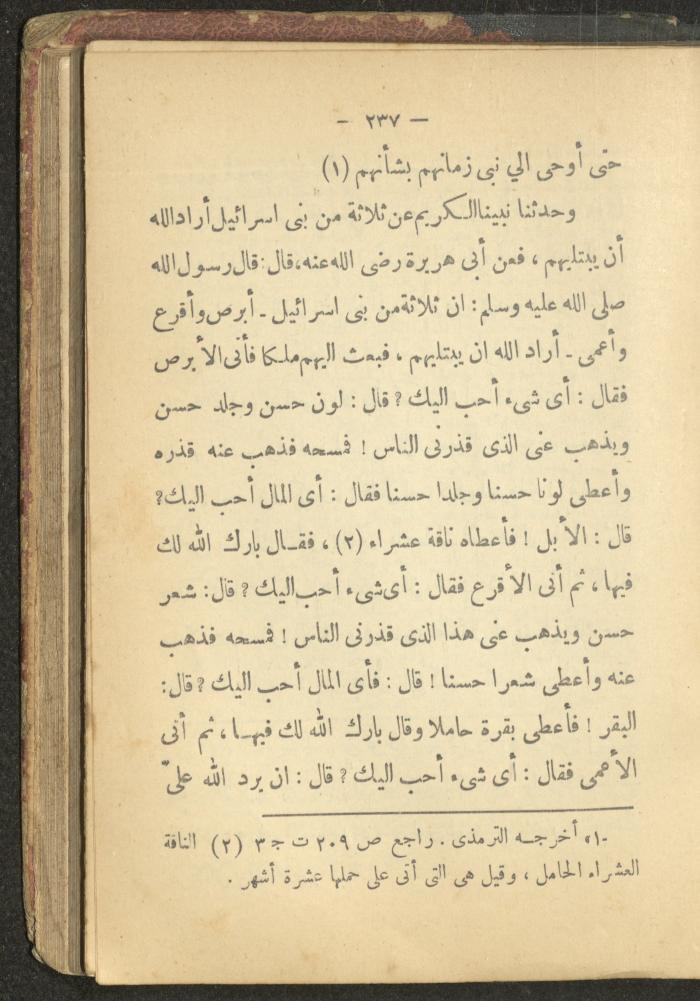 — ٢٣٧ —
حتى أوحى الي نبي زمانهم بشأنهم (١)
وحدثنا نبينا الكريم عن ثلاثة من بني اسرائيل أراد الله
أن يبتليهم ، فعن أبي هريرة رضى الله عنه، قال : قال رسول الله
صلى الله عليه وسلم : ان ثلاثة من بني اسرائيل ـ أبرص وأقرع
وأعمى ـ أراد الله ان يبتليهم ، فبعث اليهم ملكا فأتى الأبرص
فقال : أي شيء أحب اليك ؟ قال : لون حسن وجلد حسن
ويذهب عني الذي قذرني الناس ! فمسحه فذهب عنه قذره
وأعطى لونا حسنا وجلدا حسنا فقال : أي المال أحب اليك؟
قال : الأبل ! فأعطاه ناقة عشراء (٢) ، فقال بارك الله لك
فيها ، ثم أتى الأقرع فقال : أي شيء أحب اليك ؟ قال : شعر
حسن ويذهب عني هذا الذي قذرني الناس ! فمسحه فذهب
عنه وأعطى شعرا حسنا ! قال : فأي المال أحب اليك ؟ قال :
البقر ! فأعطى بقرة حاملا وقال بارك الله لك فيها ، ثم أتى
الأعمى فقال : أي شيء أحب اليك ؟ قال : ان يرد الله عليّ
«١» أخرجه الترمذي . راجع ص ٢٠٩ ت ج ٣ (٢) الناقة
العشراء الحامل ، وقيل هي التي أتى على حملها عشرة أشهر .